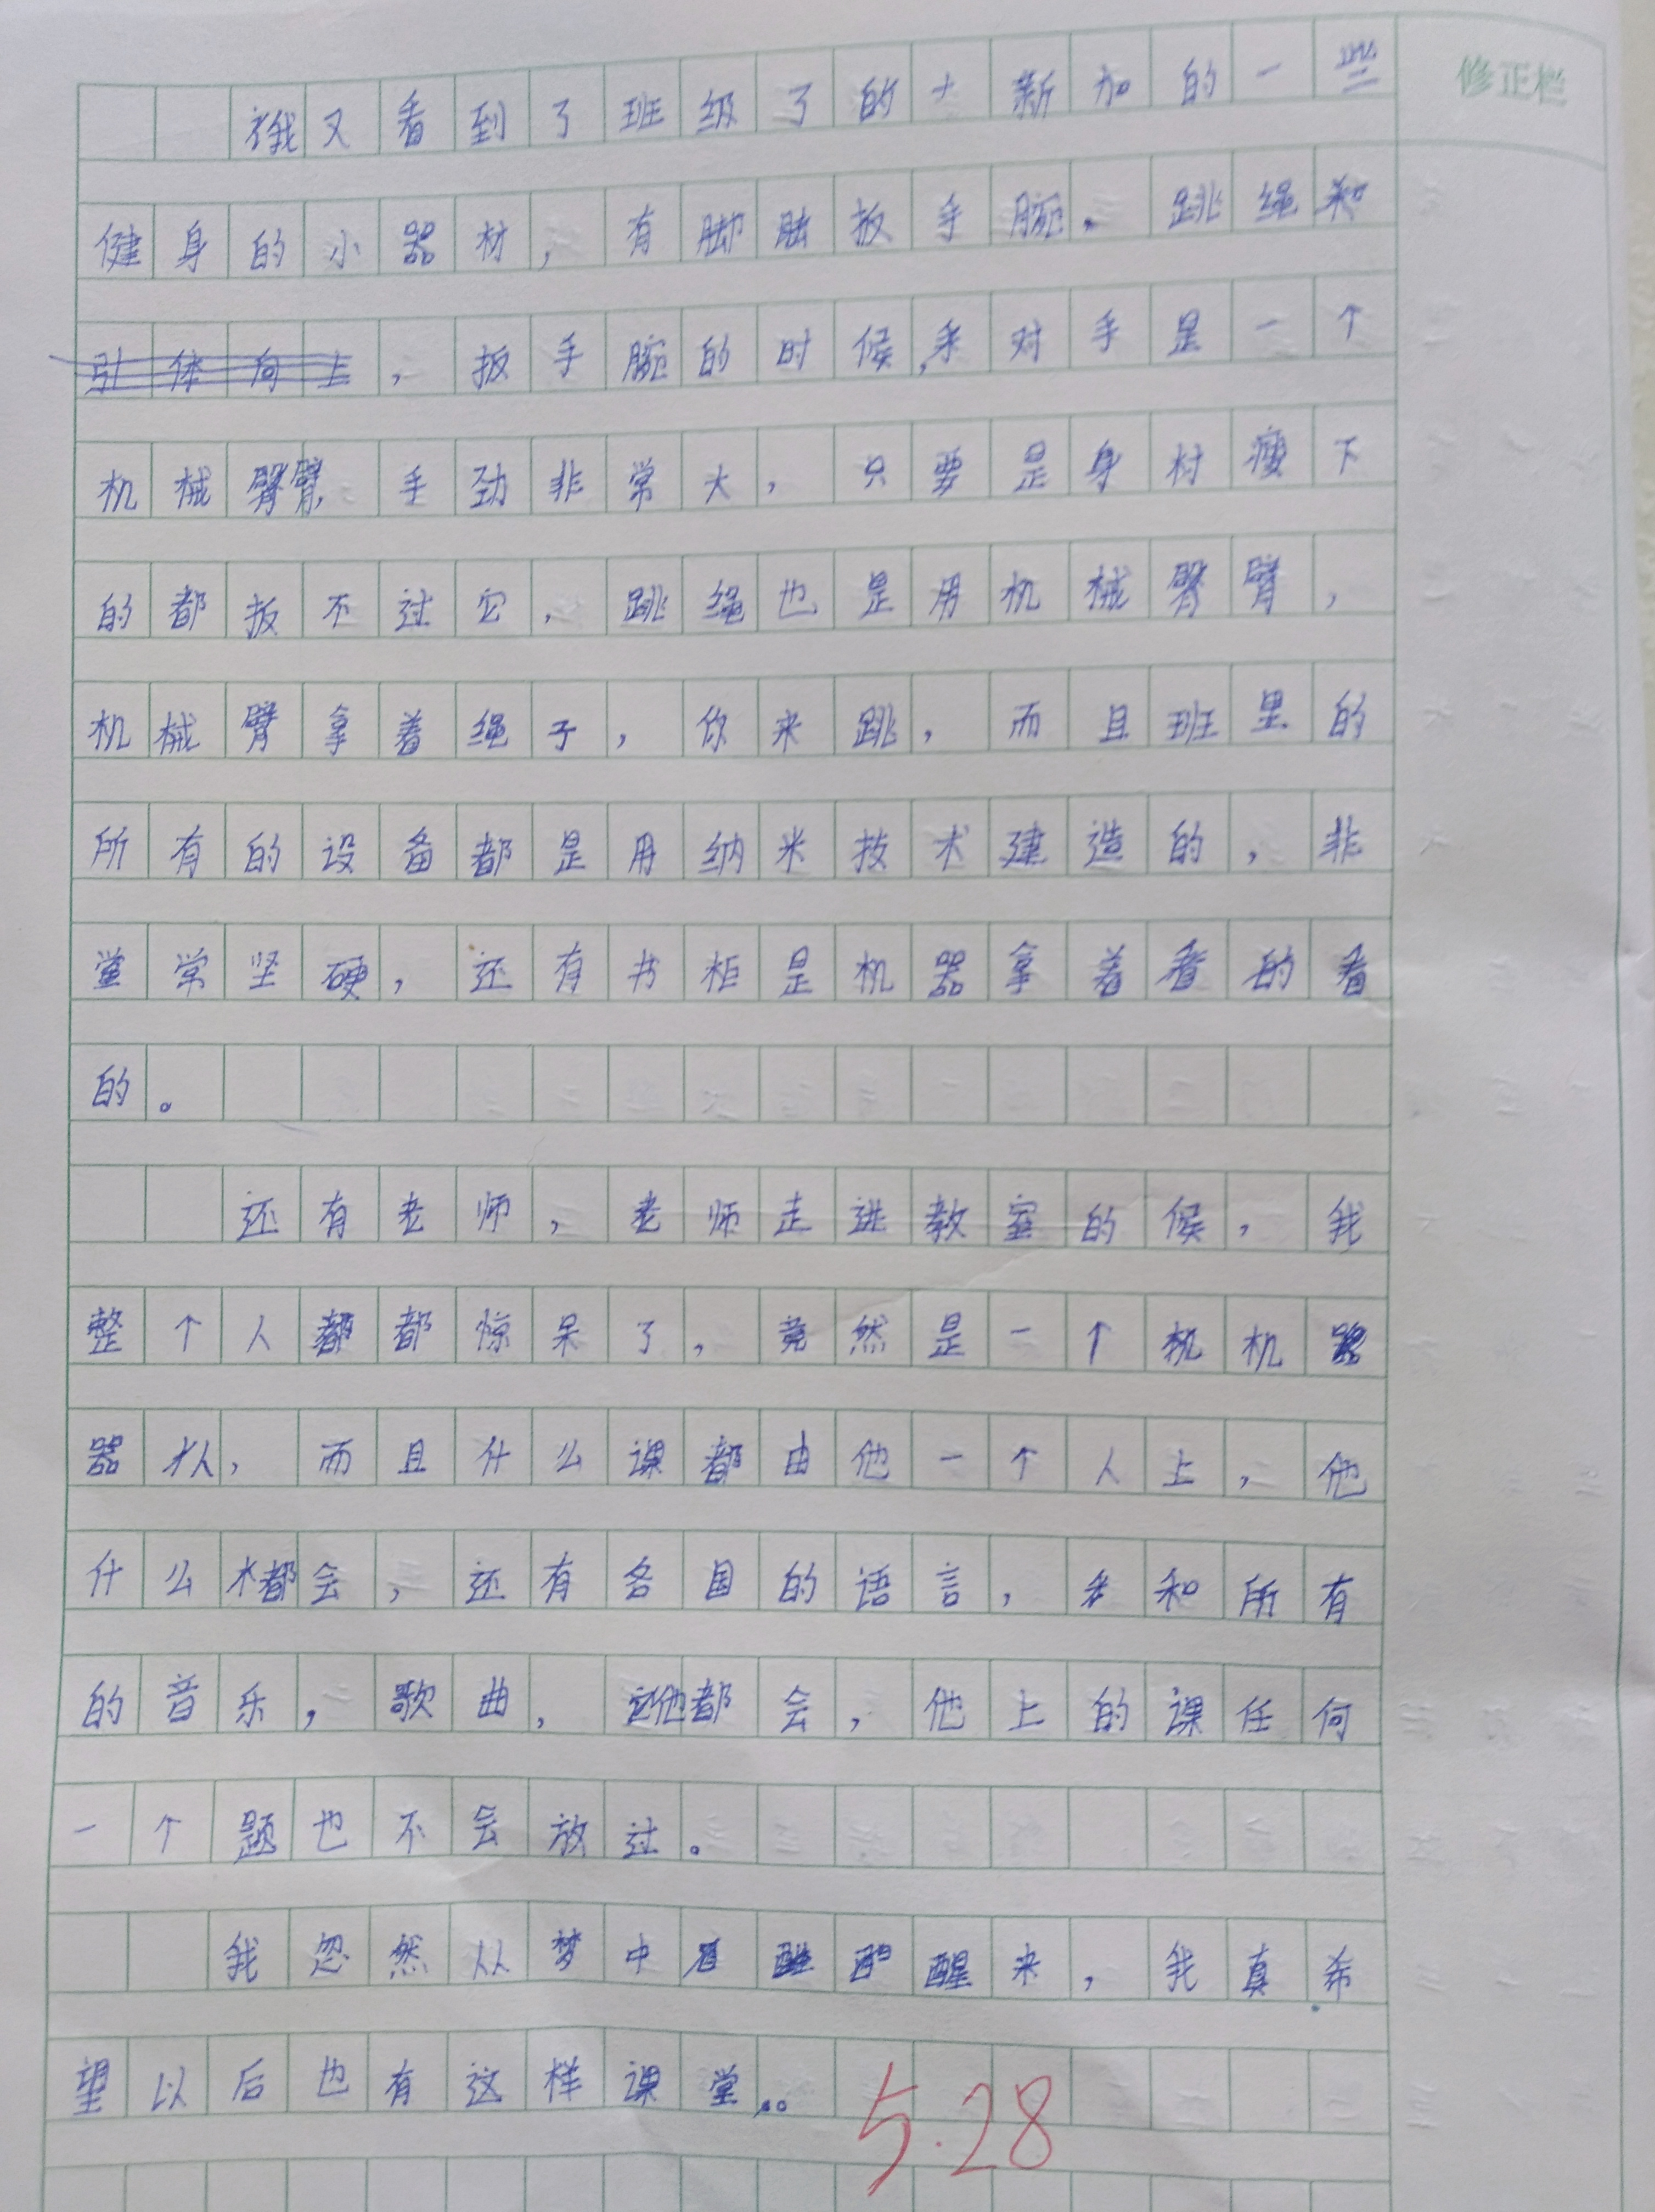 修正栏
我又看到了班级了的新加的一些
健身的小器材，有脚扳手腕，跳绳和
引体向上，扳手腕的时候，对手是一个
机械臂，手劲非常大，只要是身材瘦下
的都扳不过它，跳绳也是用机械臂臂，
机械臂拿着绳子，你来跳，而且班里的
所有的设备都是用纳米技术建造的，非
常坚硬，还有书柜是机器拿着看的看
的。
还有老师，老师走进教室的候，我
整个人都都惊呆了，竟然是一个机机器
器人，而且什么课都由他一个人上，他
什么都会，还有各国的语言，和所有
的音乐，歌曲，他都会，他上的课任何
一个题也不会放过。
我忽然从梦中醒来，我真希
望以后也有这样课堂。
5.28